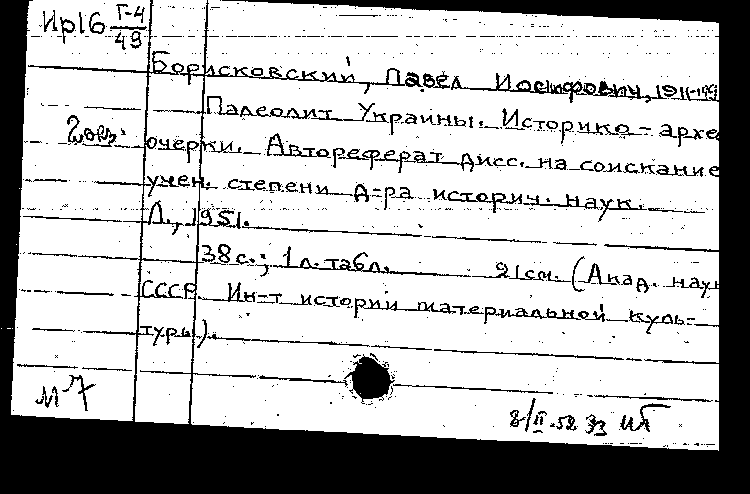 Ир16 Г-4
49
Борисковский, Павел Иосифович, 1911-199
Палеолит Украины. Историко-архе
2 экз.
очерки. Автореферат дисс. на соискание
учен. степени д-ра историч. наук.
Л., 1951.
38 с.; 1 л. табл. 21 см. (Акад. наук
СССР. Ин-т истории материальной куль-
туры).
м 7
8/II.52